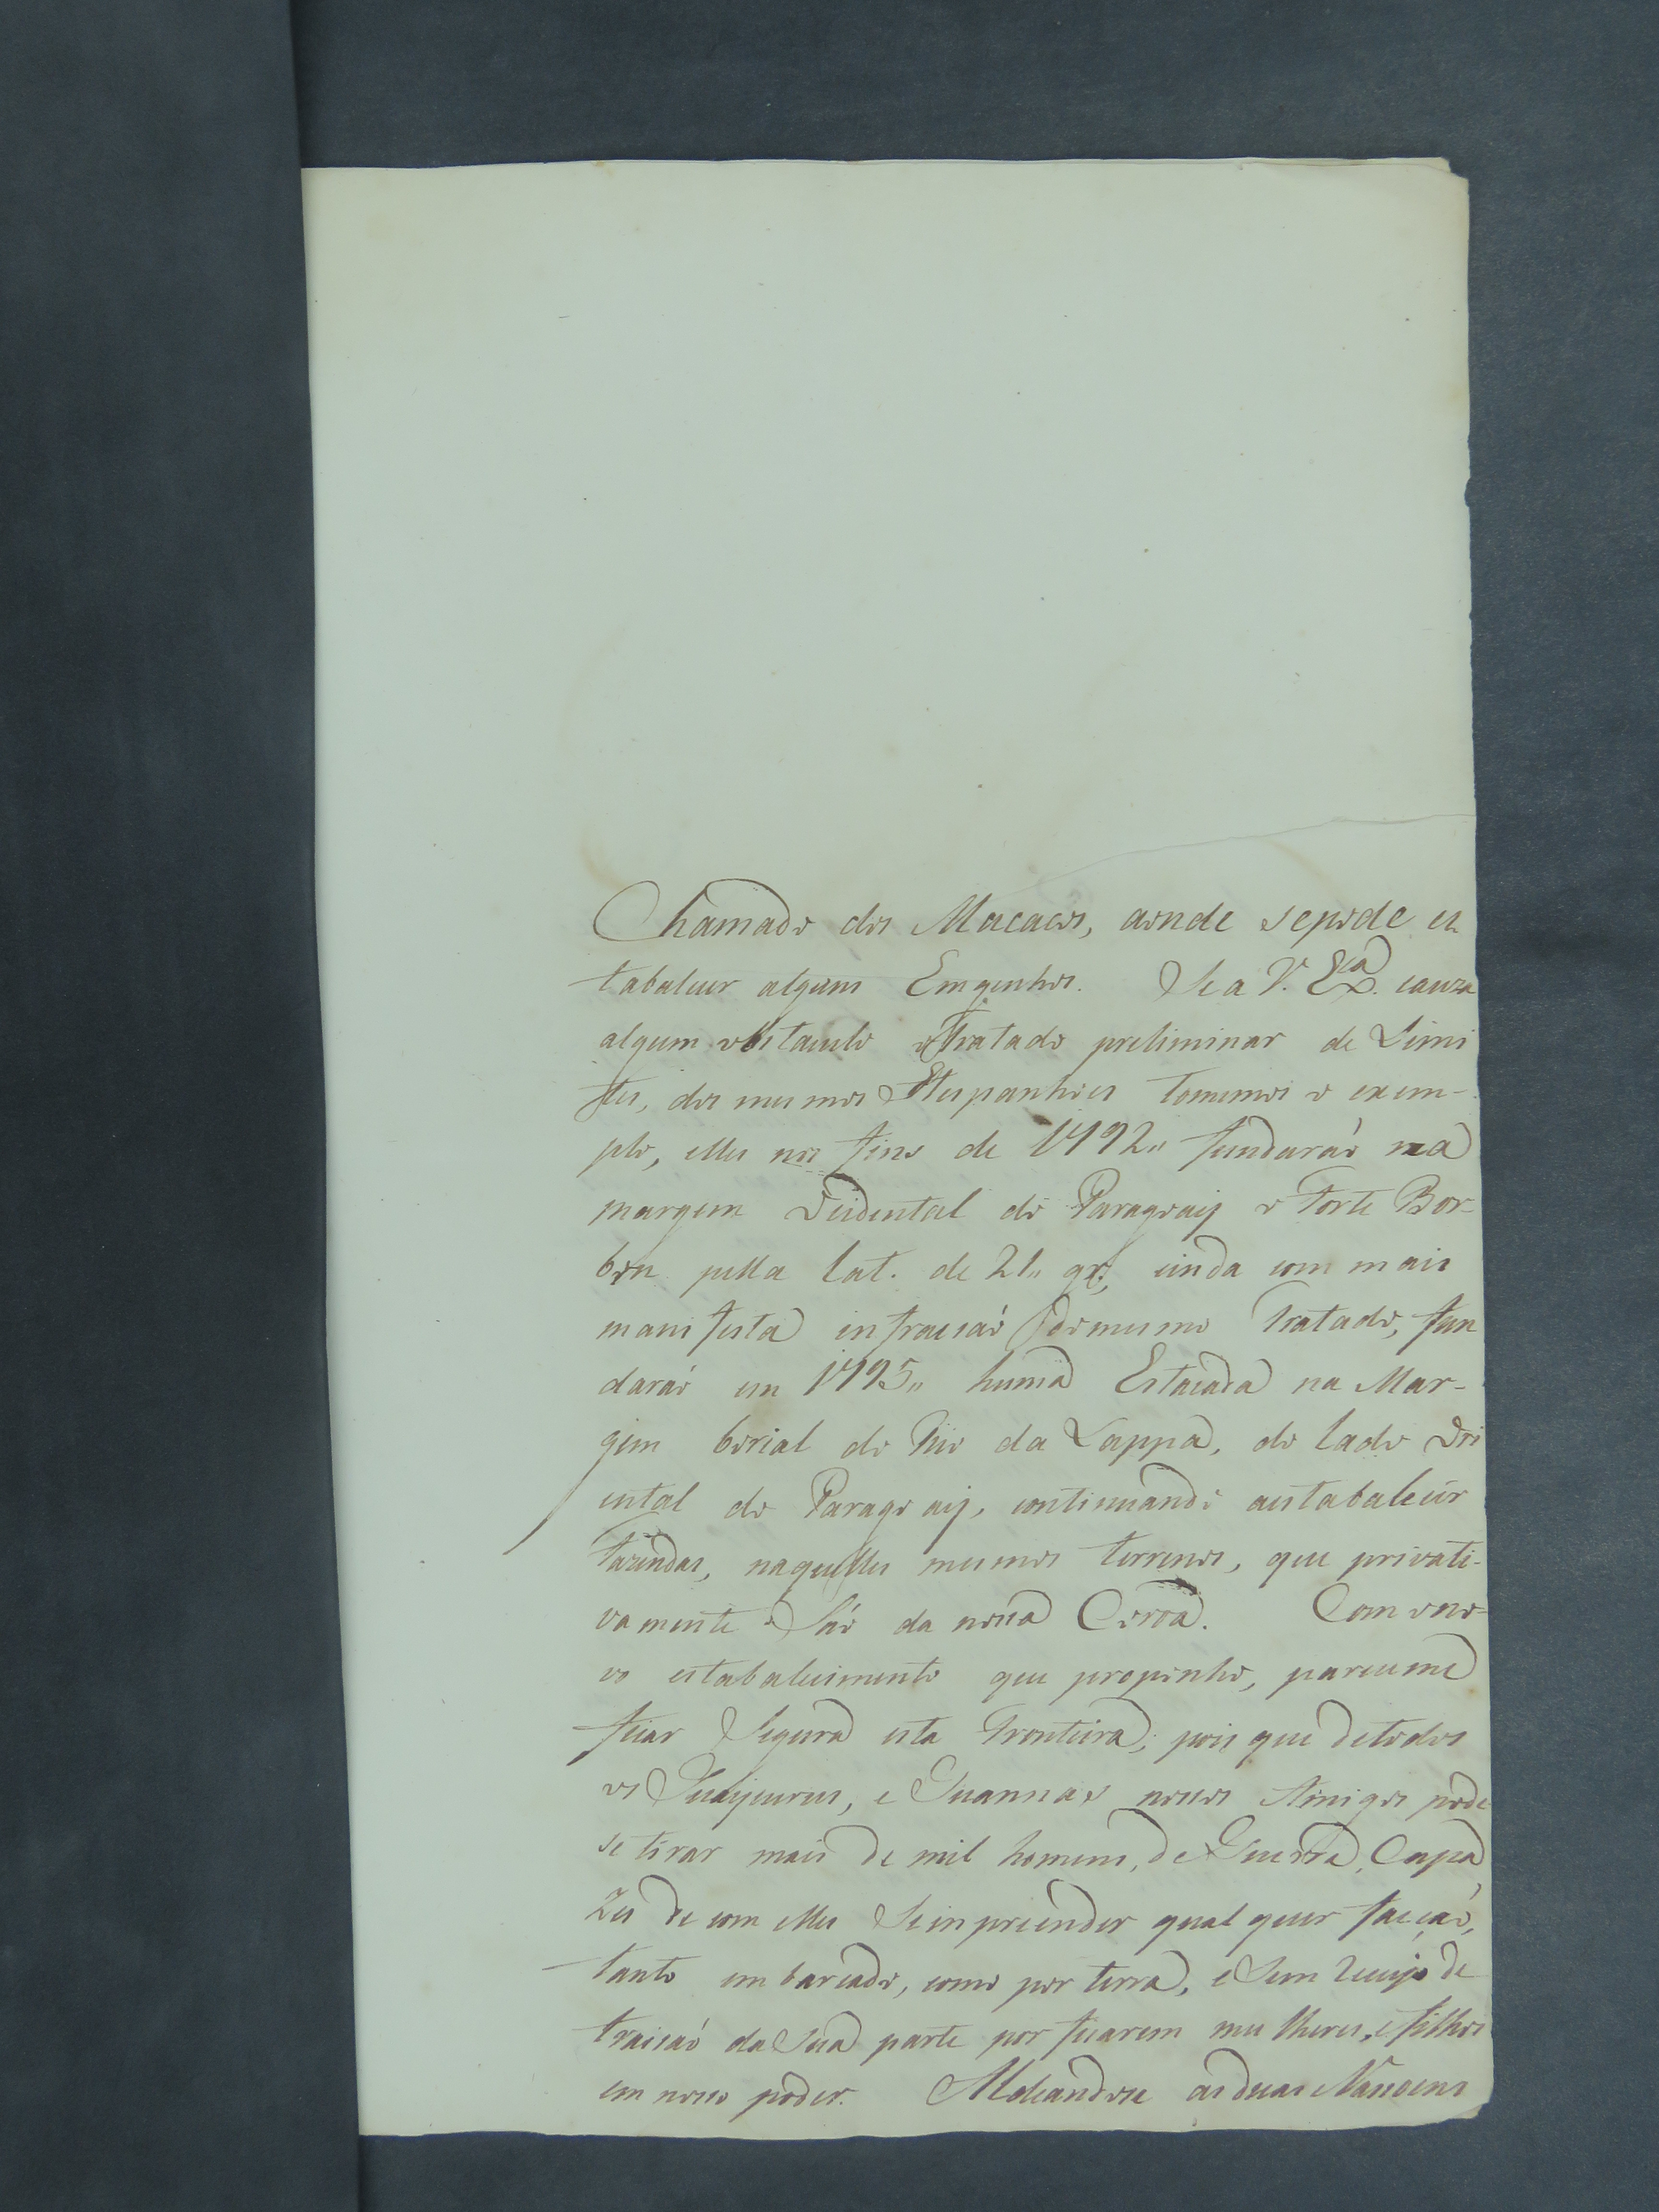 Chamado dos Macacos, aonde sepode es
tabalecer alguns Emgenhos. Se a V. Ex.ca cauza
algum obstaculo o Tratado preliminar de Limi
tes, dos mesmos Hespanhoes tomemos o exem-
plo, elles nos fins de 1792,, fundaraó na
margem Ocidental do Paragoay o Forte Bor-
bon pella lat. de 21,, gr.; einda com mais
manifesta infracsaó do mesmo Tratado, fun
daraó em 1795,, huma Estacada na Mar-
gem borial do Rio da Lappa, do lado Ori
ental do Paragoay, continuando aestabalecer
Fazendas, naquelles mesmos terrenos, que privati-
vamente Saó da nossa Coroa. Com ono-
vo estabalecimento que proponho, pareceme
ficar Segura esta Fronteira; pois que detodos
os Guaycurus, e Guannas nossos Amigos pode
se tirar mais de mil homens, de Guerra, Capa
zes de com elles Seinpreender qual quer facçaó,
tanto embarcado, como por terra, e Sem receyo de
traisaó da Sua parte por ficarem mulheres, e filhos
em nosso poder. Aldeandose as duas Nassoens